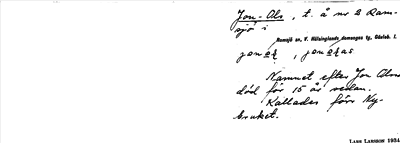 Jon-Ols, t. å nr 2 Ram-
sjö i
Ramsjö sn, V. Hälsinglands domsagas tg, Gävleb. l.
jonạr, jonạras
Namnet efter Jon Olsson
död för 15 år sedan.
Kallades förr Ny-
bruket.
LARS LARSSON 1934